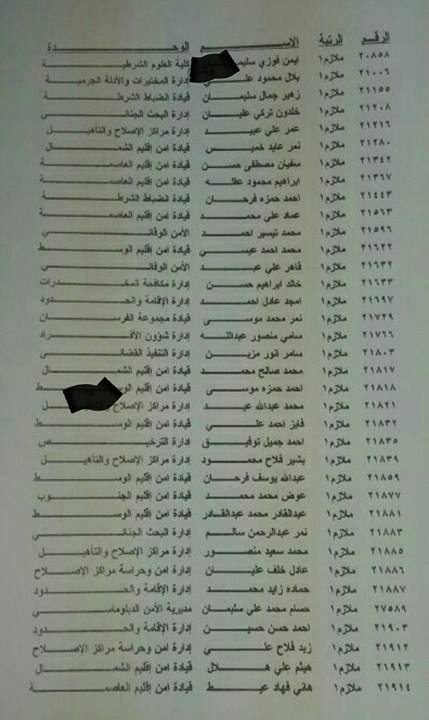 الرقم الرتبة الاسم الوحدة
٢٠٨٥٨ ملازم١ ايمن فوزي كلية العلوم الشرطية
٢١٠٠٦ ملازم١ بلال محمود إدارة المختبرات والأدلة الجرمية
٢١١٥٥ ملازم١ زهير جمال سليمان قيادة الضباط الشرطة
٢١٢٠٨ ملازم١ خلدون تركي عليان إدارة البحث الجنائي
٢١٢١٦ ملازم١ عمر علي عبيد إدارة مراكز الإصلاح والتأهيل
٢١٢٨٠ ملازم١ نمر عايد خميس قيادة امن إقليم الشمال
٢١٣٤٢ ملازم١ سفيان مصطفى حسن قيادة امن إقليم العاصمة
٢١٣٦٧ ملازم١ ابراهيم محمود عقله قيادة امن إقليم العاصمة
٢١٤٤٣ ملازم١ احمد حمزه فرحان قيادة الضباط الشرطة
٢١٥٦٣ ملازم١ عماد علي محمد قيادة امن إقليم العاصمة
٢١٥٩٦ ملازم١ محمد تيسير احمد الأمن الوقائي
٢١٦٢٢ ملازم١ محمد احمد عيسى قيادة امن إقليم الوسط
٢١٦٣٢ ملازم١ فاهر علي عبد الأمن الوقائي
٢١٦٣٣ ملازم١ خالد ابراهيم حسن إدارة مكافحة المخدرات
٢١٦٩٧ ملازم١ امجد عادل احمد إدارة الإقامة والحدود
٢١٧٢٩ ملازم١ نمر محمد موسى قيادة مجموعة الفرسان
٢١٧٦٦ ملازم١ سامي منصور عبدالله إدارة شؤون الأفراد
٢١٨٠٣ ملازم١ سامر انور مزين إدارة التنفيذ القضائي
٢١٨١٧ ملازم١ محمد صالح محمد قيادة امن إقليم الشمال
٢١٨١٨ ملازم١ احمد حمزه موسى قيادة امن إقليم الوسط
٢١٨٢١ ملازم١ محمد عبدالله عبد إدارة مراكز الإصلاح
٢١٨٣٢ ملازم١ فايز احمد علي قيادة امن إقليم الوسط
٢١٨٣٥ ملازم١ احمد جميل توفيق إدارة الترخيص
٢١٨٣٩ ملازم١ بشير فلاح محمود إدارة مراكز الإصلاح والتأهيل
٢١٨٥٩ ملازم١ عبدالله يوسف فرحان قيادة امن إقليم الوسط
٢١٨٧٧ ملازم١ عوض محمد محمد قيادة امن إقليم الجنوب
٢١٨٨١ ملازم١ عبدالقادر محمد عبدالقادر قيادة امن إقليم الوسط
٢١٨٨٣ ملازم١ نمر عبدالرحمن سالم إدارة البحث الجنائي
٢١٨٨٥ ملازم١ محمد سعيد منصور إدارة مراكز الإصلاح والتأهيل
٢١٨٨٦ ملازم١ عادل خلف عليان إدارة امن وحراسة مراكز الإصلاح
٢١٨٨٧ ملازم١ حماده زايد محمد إدارة الإقامة والحدود
٢٧٥٨٩ ملازم١ حسام محمد علي سليمان مديرية الأمن الدبلوماسي
٢١٩٠٣ ملازم١ احمد حسن حسين إدارة الإقامة والحدود
٢١٩١٢ ملازم١ زيد فلاح علي إدارة امن وحراسة مراكز الإصلاح
٢١٩١٣ ملازم١ هيثم علي هلال قيادة امن إقليم الشمال
٢١٩١٤ ملازم١ هاني فهاد عيط قيادة امن إقليم العاصمة